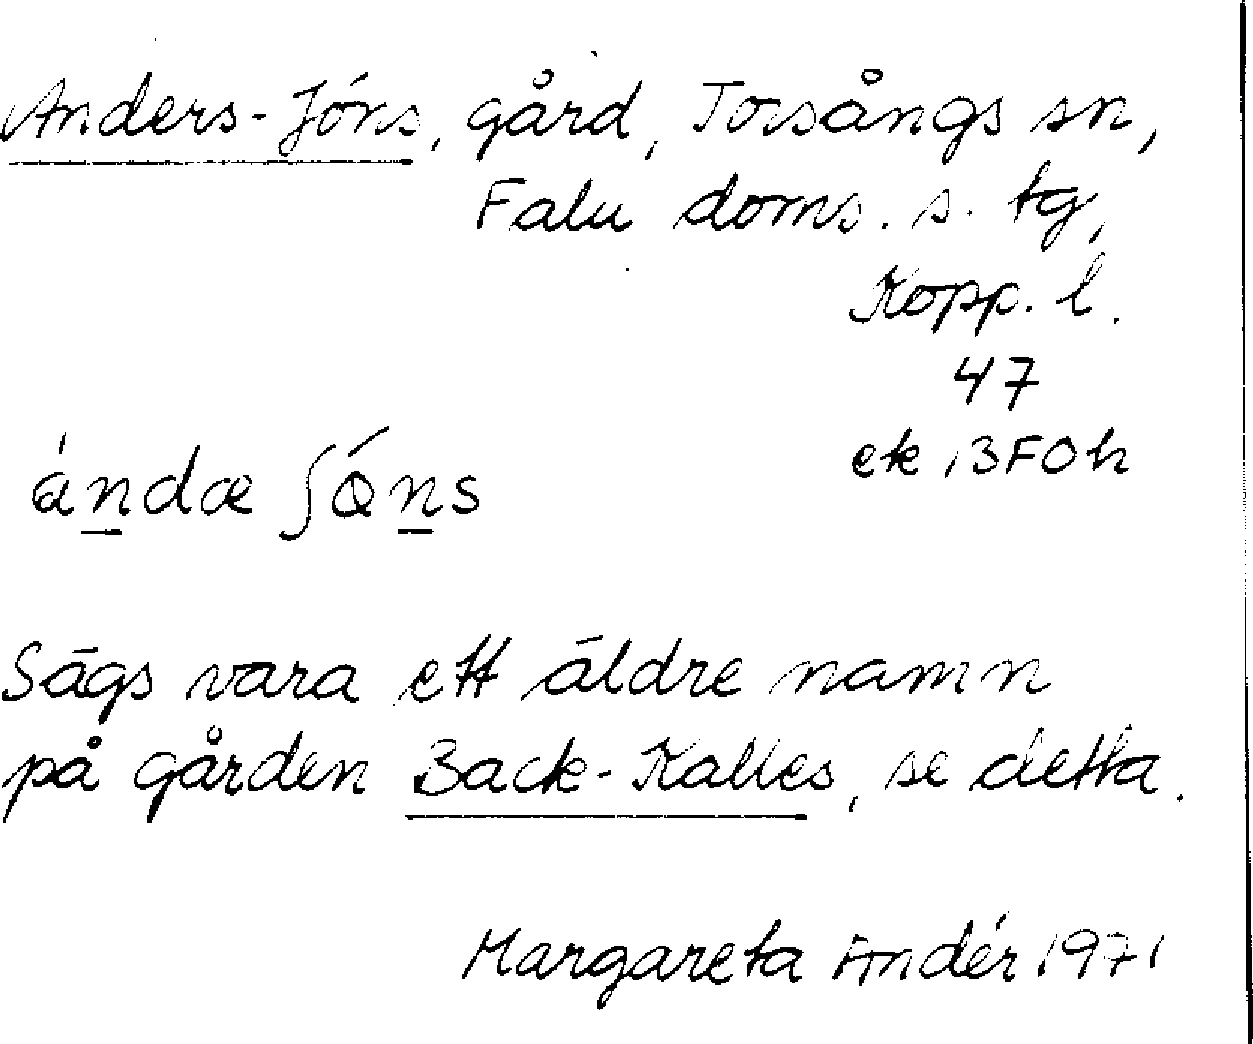 Anders-Jóns, gård, Torsångs sn,
Falu doms. s. tg,
Kopp. l.
47
ek 13F0h
ándæ ʃǿns
Sägs vara ett äldre namn
på gården Back-Kalles, se detta.
Margareta Andér 1971